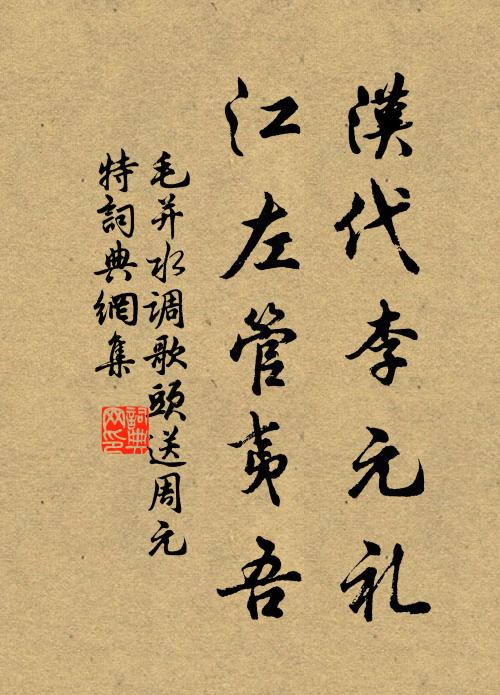 漢代李元礼
江左管夷吾
毛并水调歌頭送周元
特詞典網集
詞典网印